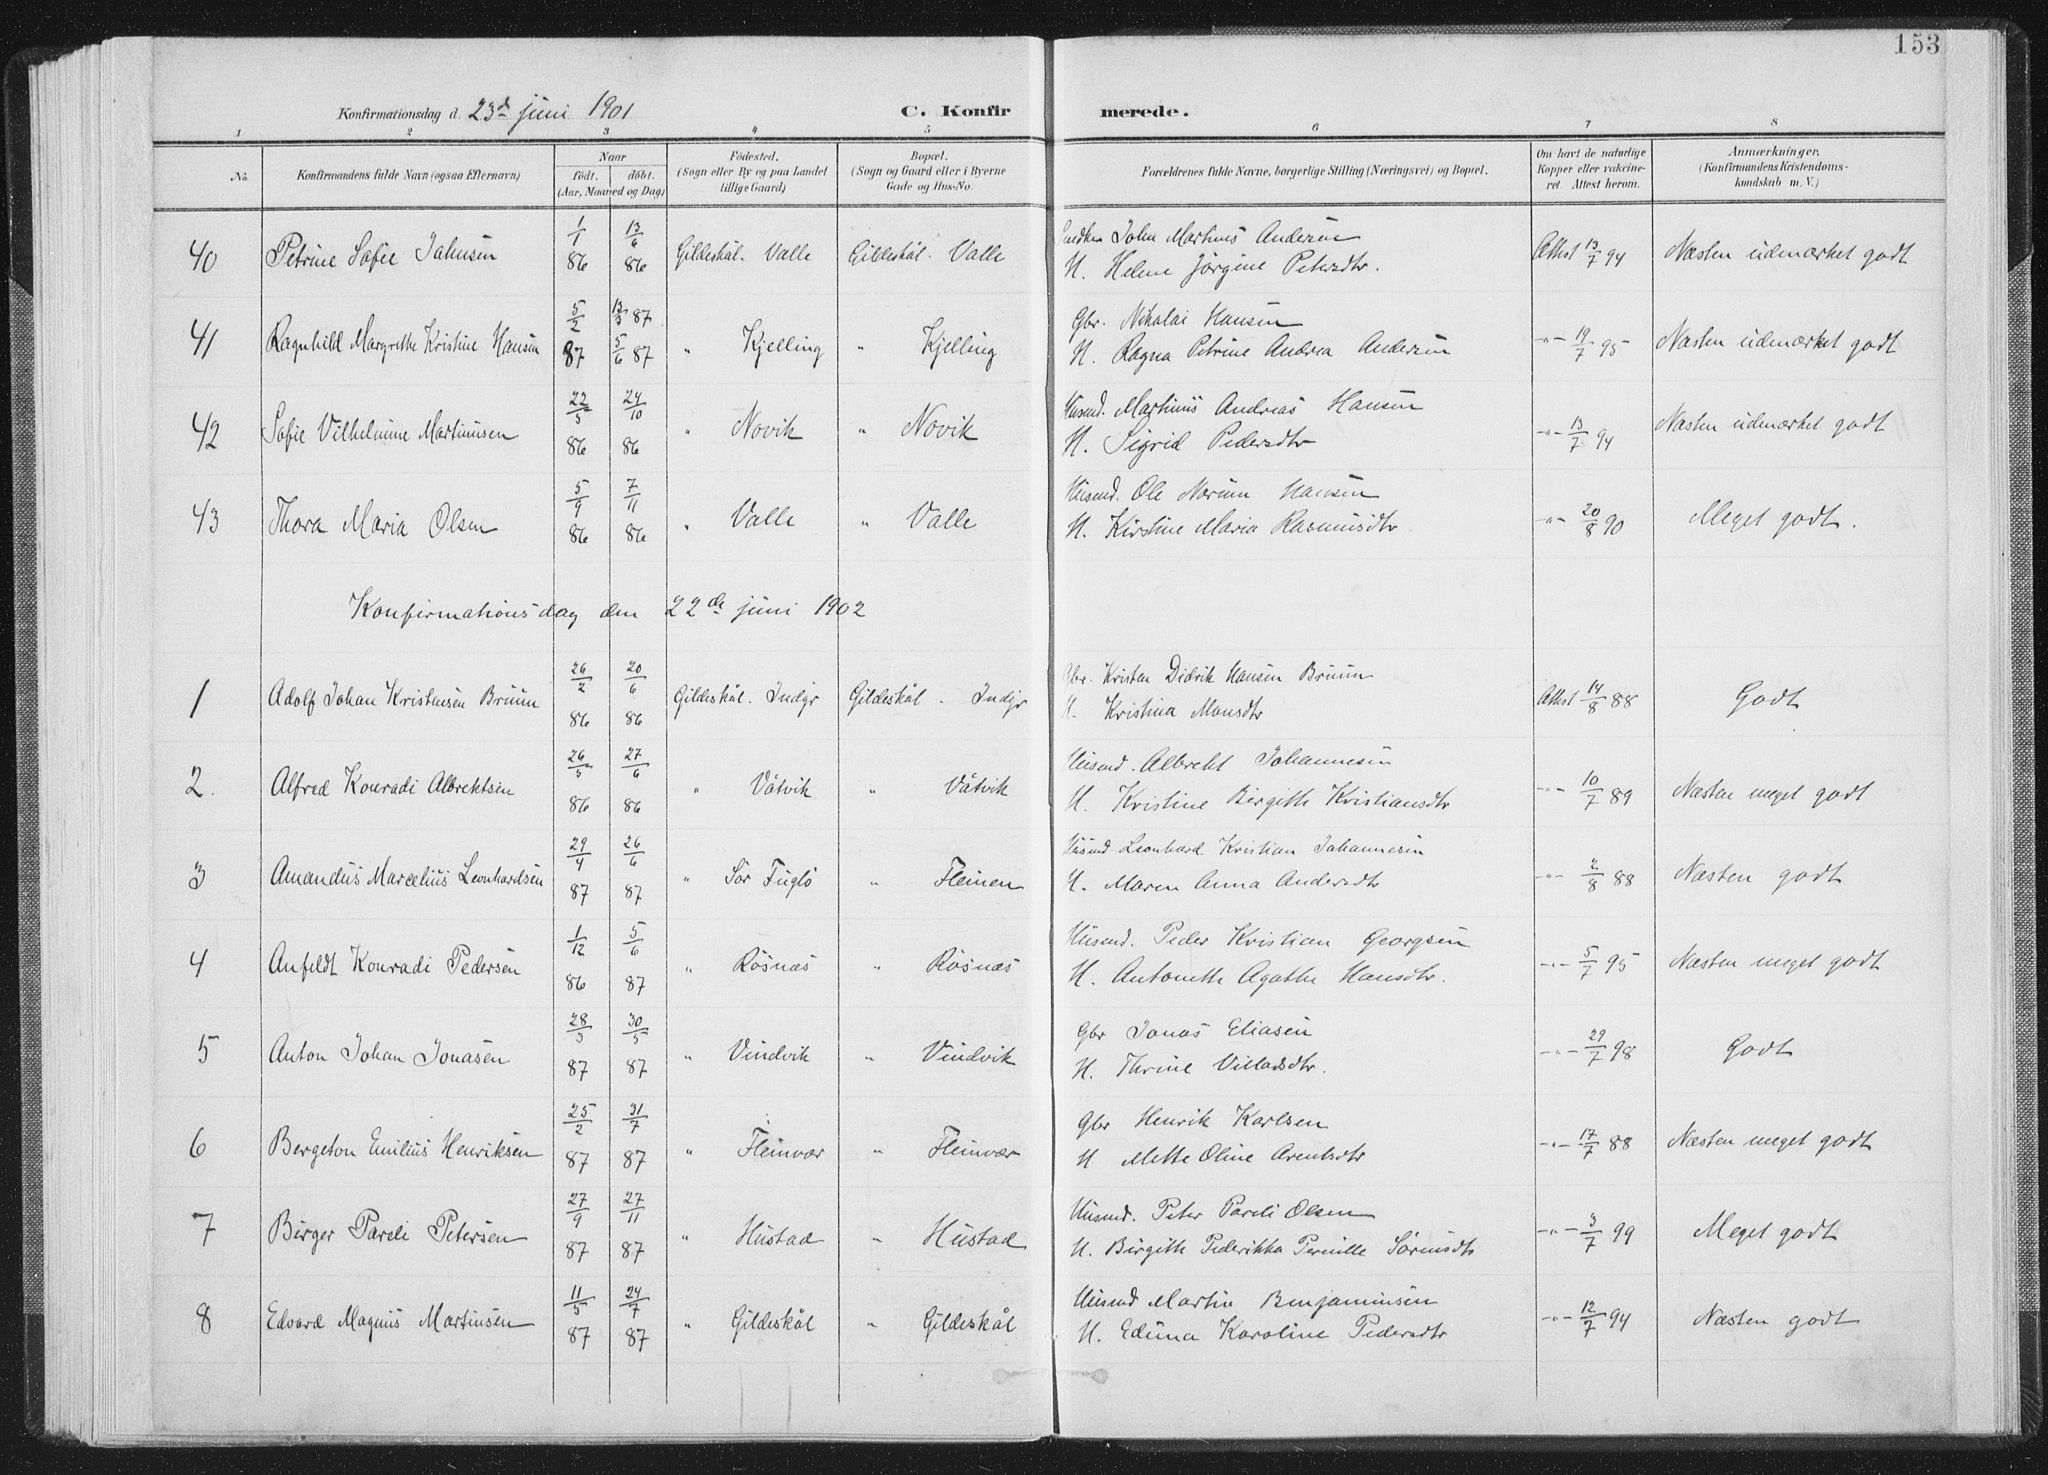 153
Konfirmationsdag d. 23de juni 1901 C. Konfirmerede.
1 2 3 4 5 6 7 8
No. Konfirmandens fulde Navn (ogsaa Efternavn) Naar født. døbt. (Aar, Maaned og Dag) Fødested. (Sogn eller By og paa Landet tillige Gaard) Bopæl. (Sogn og Gaard eller i Byerne Gade og Hus-No. Forældrenes fulde Navne, borgerlige Stilling (Næringsvei) og Bopæl. Om havt de naturlige Kopper eller vakcineret. Attest herom. Anmærkninger. (Konfirmandens Kristendomskundskab m. V.)
40 Petrine Sofie Jahnsen 1/1 86 13/6 86 Gildeskål. Valle Gildeskål. Valle John Martinus Andersen
H. Helene Jørgine Petersdtr. Attest 13/7 94 Næsten udmærket godt
41 Ragnhild Margrethe Kristine Hansen 5/2 87 13/3 87 5/6 87 " Kjelling " Kjelling Gbr. Nikolai Hansen
H. Ragna Petrine Andrea Andersen -"- 19/7 95 Næsten udmærket godt
42 Sofie Vilhelmine Martinusen 22/5 86 24/10 86 " Novik " Novik Husmd. Martinus Andreas Hansen
H. Sigrid Pedersdtr -"- 13/7 94 Næsten udmærket godt
43 Thora Maria Olsen 5/9 86 7/11 86 " Valle " Valle Husmd. Ole Norum Hansen
H. Kirstine Maria Rasmusdtr. -"- 20/8 90 Meget godt.
Konfirmationsdag den 22de juni 1902
1 Adolf Johan Kristensen Bruun 26/2 86 20/6 86 Gildeskål. Indyr Gildeskål. Indyr Gbr. Kristen Didrik Hansen Bruun
H. Kristina Monsdtr Attest 14/8 88 Godt
2. Alfred Konradi Albrektsen 26/5 86 27/6 86 " Våtvik " Våtvik Husmd. Albrekt Johannesen
H. Kristine Birgithe Kristiansdtr -"- 10/7 89 Næsten meget godt
3 Amandus Marcelius Leonhardsen 29/4 87 26/6 87 " Sør Fuglø " Fleinen Husmd Leonhard Kristian Johannesen
H. Maren Anna Andersdtr -"- 2/8 88 Næsten godt
4 Anfeldt Konradi Pedersen 1/12 86 5/6 87 " Røsnæs " Røsnæs Husmd. Peder Kristian Georgsen
H. Antonette Agathe Hansdtr. -"- 5/7 95 Næsten meget godt
5 Anton Johan Jonasen 28/3 87 30/5 87 " Vindvik " Vindvik Gbr Jonas Eliasen
H. Thrine Villadsdtr. -"- 29/7 98 Godt
6 Bergeton Emilius Henriksen 25/2 87 31/7 87 " Fleinvær " Fleinvær Gbr Henrik Karlsen
H Mette Oline Arentsdtr -"- 17/7 88 Næsten meget godt
7 Birger Pareli Petersen 27/9 87 27/11 87 " Hustad " Hustad Husmd. Peter Pareli Olsen
H. Birgithe Pederikka Pernille Sørensdtr -"- 3/7 99 Meget godt
8 Edvard Magnus Martinsen 11/5 87 24/7 87 " Gildeskål " Gildeskål Husmd Martin Benjaminsen
H. Edima Karoline Pedersdtr -"- 12/7 94 Næsten godt